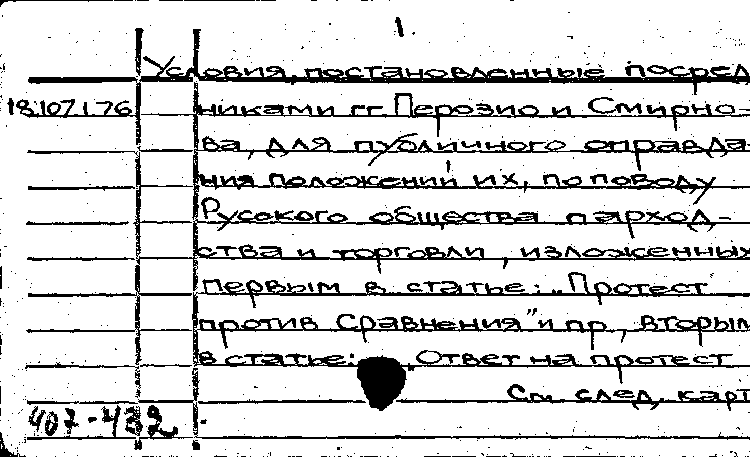 1.
Условия, постановленные посред
18.107.1.76 никами гг. Перозио и Смирно-
ва, для публичного оправда-
ния положений их, по поводу
Русского общества пароход-
ства и торговли, изложенных
первым в статье: „Протест
против Сравнения" и пр., вторым
в статье: „Ответ на протест
См. след. карт
407-432